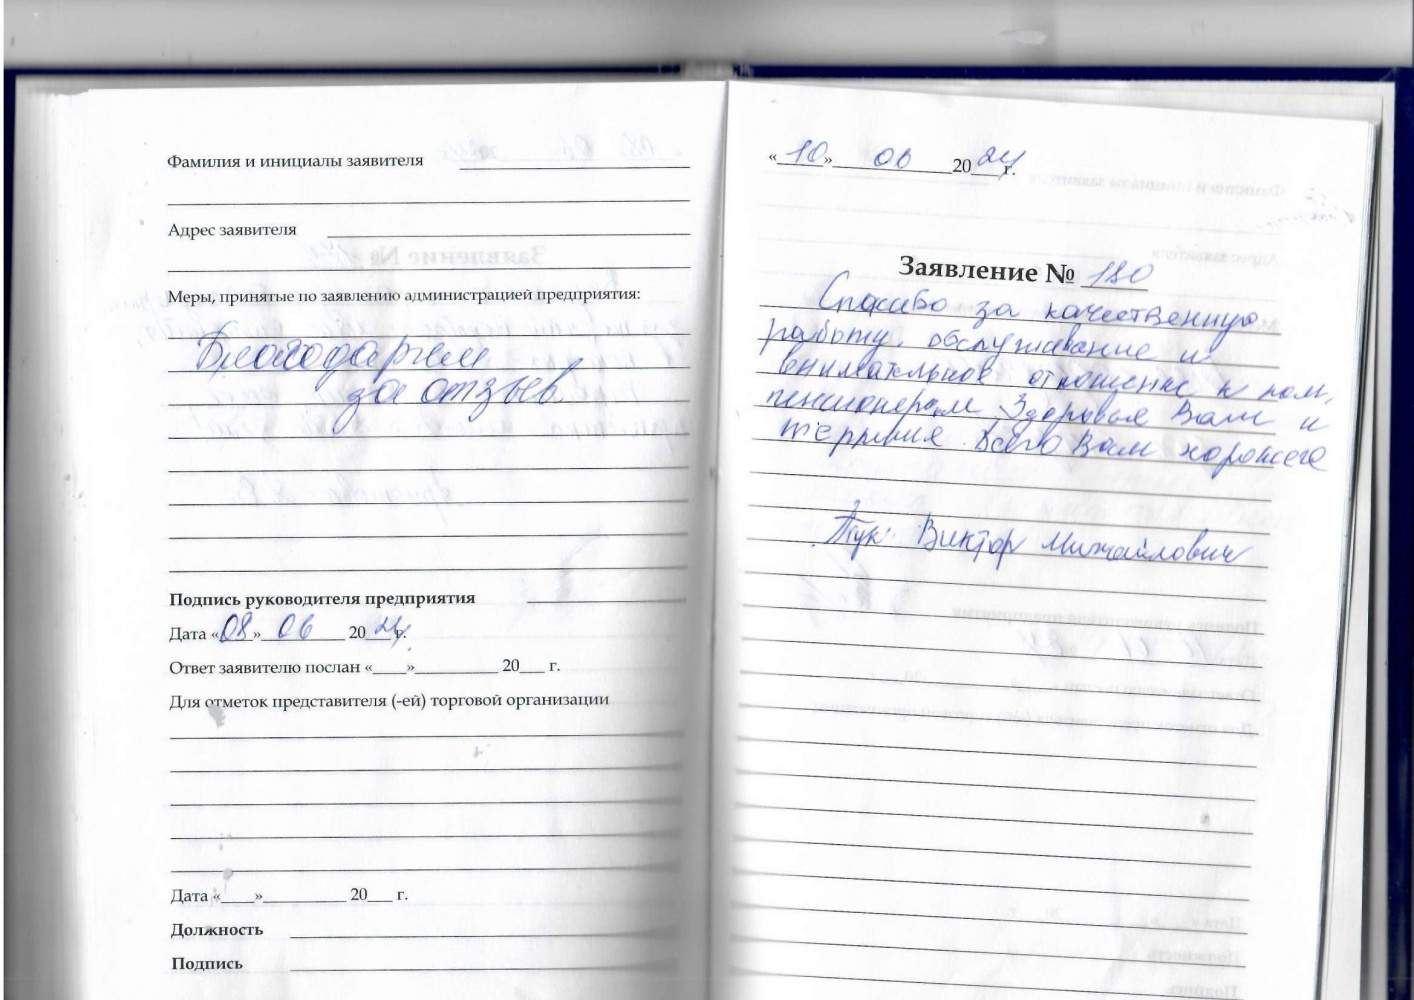 Фамилия и инициалы заявителя
Адрес заявителя
Меры, принятые по заявлению администрацией предприятия:
Благодарим
за отзыв.
Подпись руководителя предприятия
Дата «08» 06 2024 г.
Ответ заявителю послан «___»__________ 20___ г.
Для отметок представителя (-ей) торговой организации
Дата «____»__________ 20___ г.
Должность
Подпись
«10» 06 2024 г.
Заявление № 180
Спасибо за качественную
работу, обслуживание и
внимательное отношение к нам,
пенсионерам. Здоровья Вам и
терпения. Всего Вам хорошего
Тук Виктор Михайлович